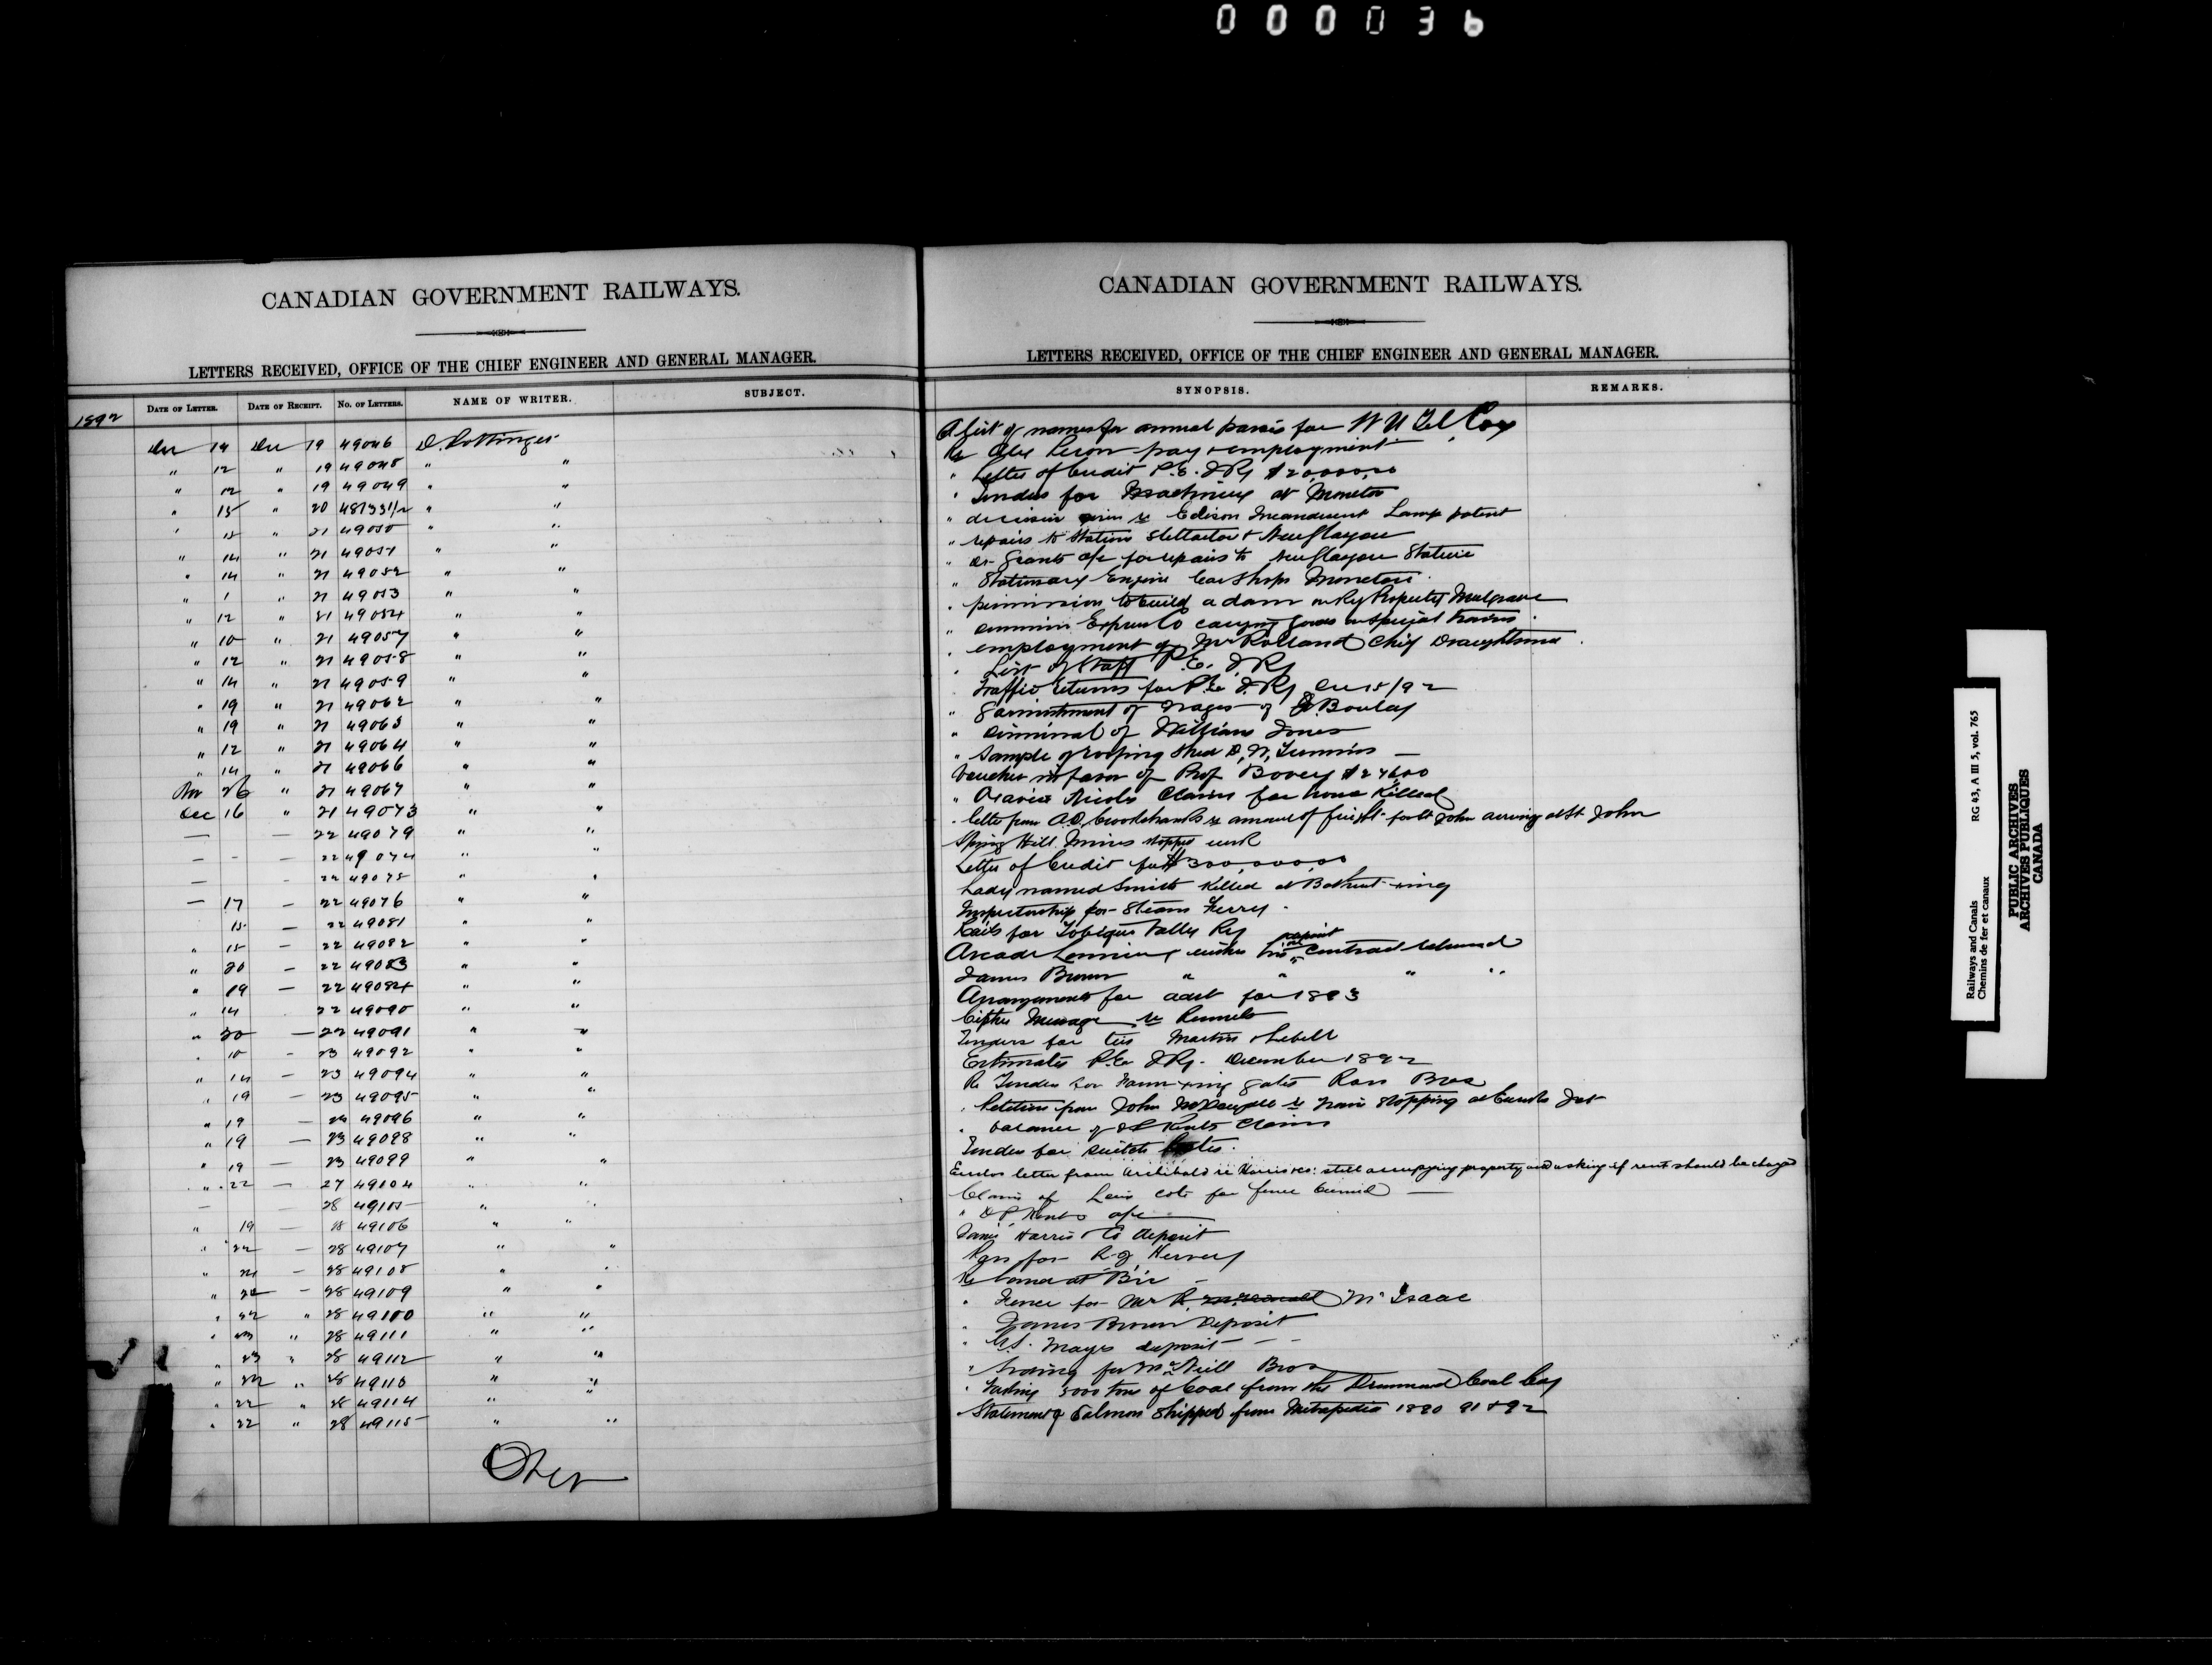 000036
CANADIAN GOVERNMENT RAILWAYS.
LETTERS RECEIVED, OFFICE OF THE CHIEF ENGINEER AND GENERAL MANAGER.
1892 DATE OF LETTER. DATE OF RECEIPT. NO. OF LETTERS. NAME OF WRITER. SUBJECT.
Dec 14 Dec 19 49046 D. Pottinger
" 12 " 19 49048 " "
" 12 " 19 49049 " "
" 15 " 20 48733 1/2 " "
" 15 " 21 49050 " "
" 14 " 21 49051 " "
" 14 " 21 49052 " "
" 1 " 21 49053 " "
" 12 " 21 49054 " "
" 10 " 21 49057 " "
" 12 " 21 49058 " "
" 14 " 21 49059 " "
" 19 " 21 49062 " "
" 19 " 21 49063 " "
" 12 " 21 49064 " "
" 14 " 21 49066 " "
Nov 26 " 21 49067 " "
Dec 16 " 21 49073 " "
— — 22 49079 " "
— - — 22 49074 " "
— - 22 49075 " "
— 17 — 22 49076 " "
15 — 22 49081 " "
" 15 — 22 49082 " "
" 20 — 22 49083 " "
" 19 — 22 49084 " "
" 14 22 49090 " "
" 20 — 22 49091 " "
" 10 - 23 49092 " "
" 14 — 23 49094 " "
" 19 — 23 49095 " "
" 19 — 23 49096 " "
" 19 — 23 49098 " "
" 19 — 23 49099 " "
" 22 — 27 49104 " "
— — 28 49105 " "
" 19 — 18 49106 " "
" 22 — 28 49107 " "
" 21 — 28 49108 " "
" 22 — 28 49109 " "
" 22 " 28 49110 " "
" 23 " 28 49111 " "
" 23 " 28 49112 " "
" 22 " 28 49113 " "
" 22 " 28 49114 " "
" 22 " 28 49115 " "
Over
CANADIAN GOVERNMENT RAILWAYS.
LETTERS RECEIVED, OFFICE OF THE CHIEF ENGINEER AND GENERAL MANAGER.
SYNOPSIS. REMARKS.
A list of names for annual passes for W U Tel Coy
Re Alex pay & employment
" Letter of Credit P.E.I Ry $20,000,00
" Tenders for Machinery at Moncton
" decision given re Edison Incandescent Lamp patent
" repairs to Station Stellarton & New Glasgow
" Dr Grants a/c for repairs to New Glasgow Station
" Stationary Engine Car Shops Moncton.
" permission to build a dam on Ry Property Mulgrave
" Express Co carrying goods on special trains.
" employment of Mr Rolland Chief Draughtsman.
" List of Staff P.E.I Ry
Traffic returns for P.E.I. Ry Dec 15/92
" Garnishment of wages of Boulay
" dismissal of William Jones
" Sample of roofing D. W. —
Voucher in favor of Prof Bovey $27600
" Nicols Claim for horse Killed
" letter from A.D. Crookshanks re amount of freight for St John arriving at St John
Spring Hill Mines stopped work
Letter of Credit for $300,000,00
Lady named Smith Killed at Bathurst X ing
Inspectorship for Steam Ferry.
Rails for Tobique Valley Ry
Arcade wishes his deposit on contract returned
James Brown " " " "
Arrangements for advt for 1893
Cipher Message re
Tenders for ties Martin Lebell
Estimates P.E.I Ry. December 1892
Re Tender for Farm X ing gates Ross Bros
" Petition from John McDougall re train stopping at Jct
" balance of Kents Claim
Tender for switch
Encloses letter from Archibald re Harris Co: still occupying property and asking if rent should be charged
Claim of Louis Cote for fence burned —
" D P Kents a/c
James Harris & Co deposit
Pass for R. G. Hervey
Re land at Bic —
" Fence for Mr R. McIsaac
" James Brown Deposit
" Mayes deposit — -
" Siding for McNeill Bros
" 3000 tons of Coal from the Drummond Coal Coy
Statement of Salmon Shipped from Metapedia 1890 91 & 92
Railways and Canals RG 43, A III 5, vol. 765
Chemins de fer et canaux
PUBLIC ARCHIVES
ARCHIVES PUBLIQUES
CANADA